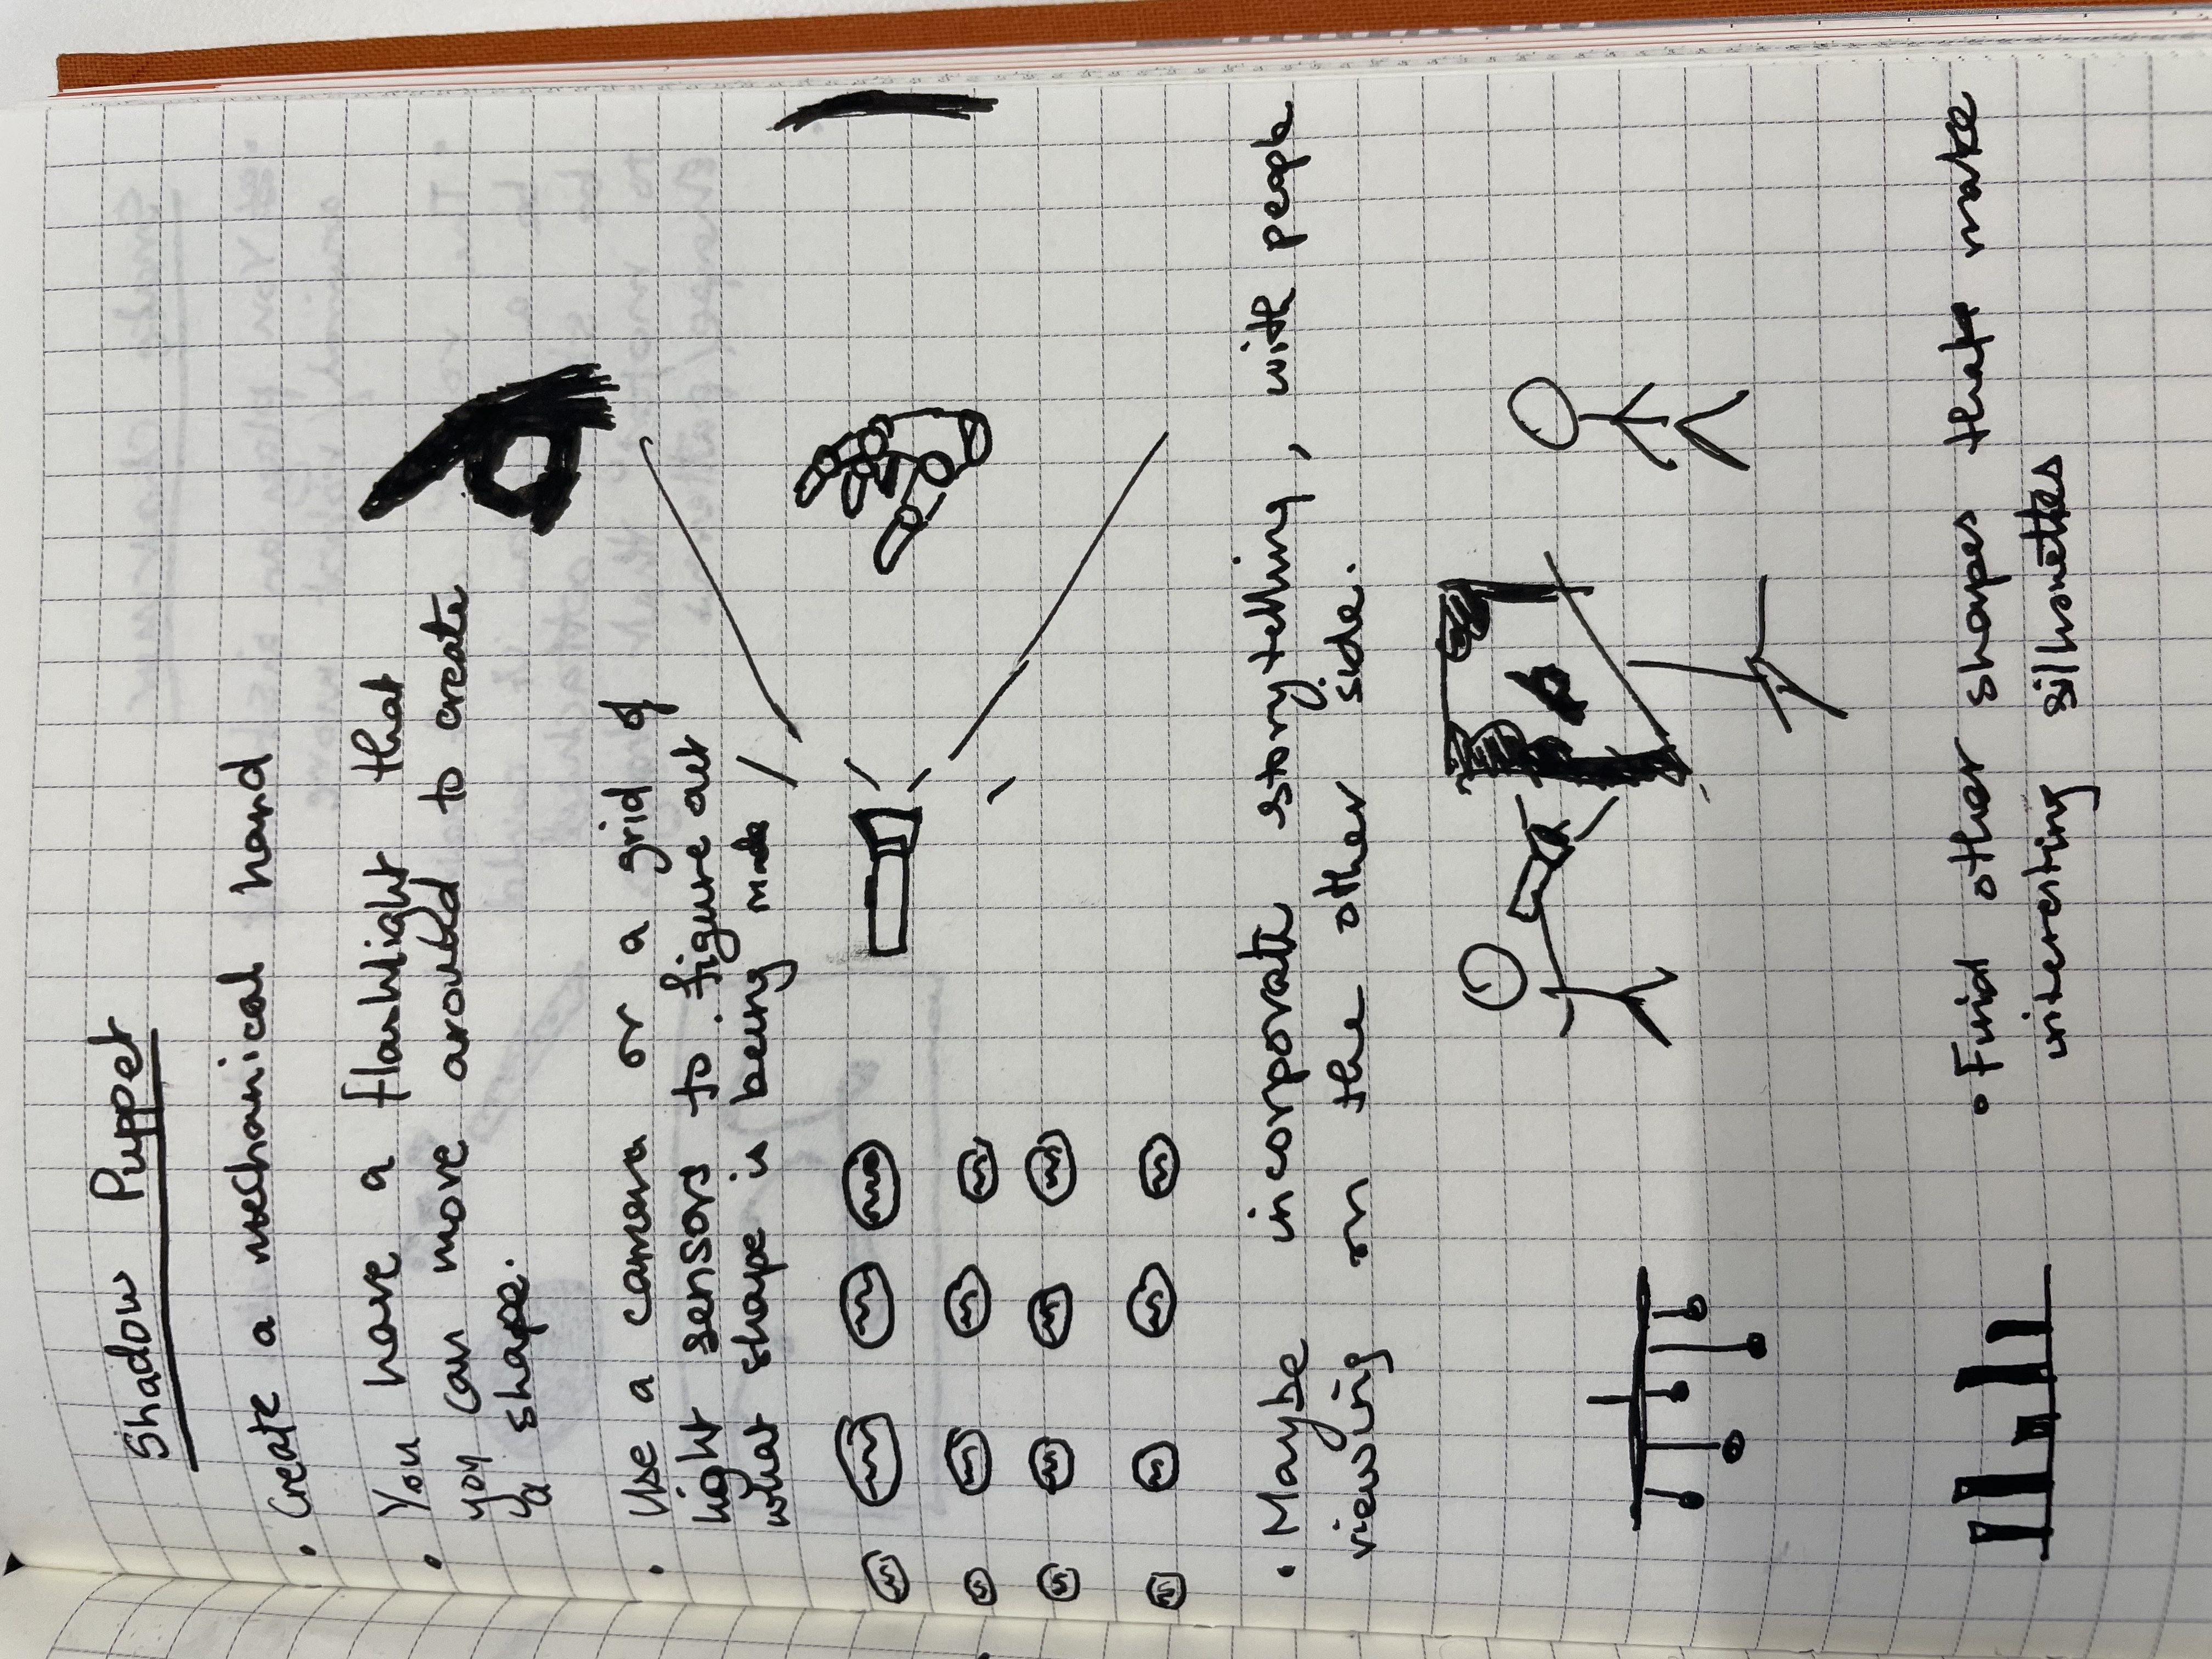 Shadow Puppet
• Create a mechanical hand
• You have a flashlight that
you can move around to create
a shape.
• Use a camera or a grid of
light sensors to figure out
what shape is being made
• Maybe incorporate storytelling, with people
viewing on the other side.
• Find other shapes that make
interesting silhouettes